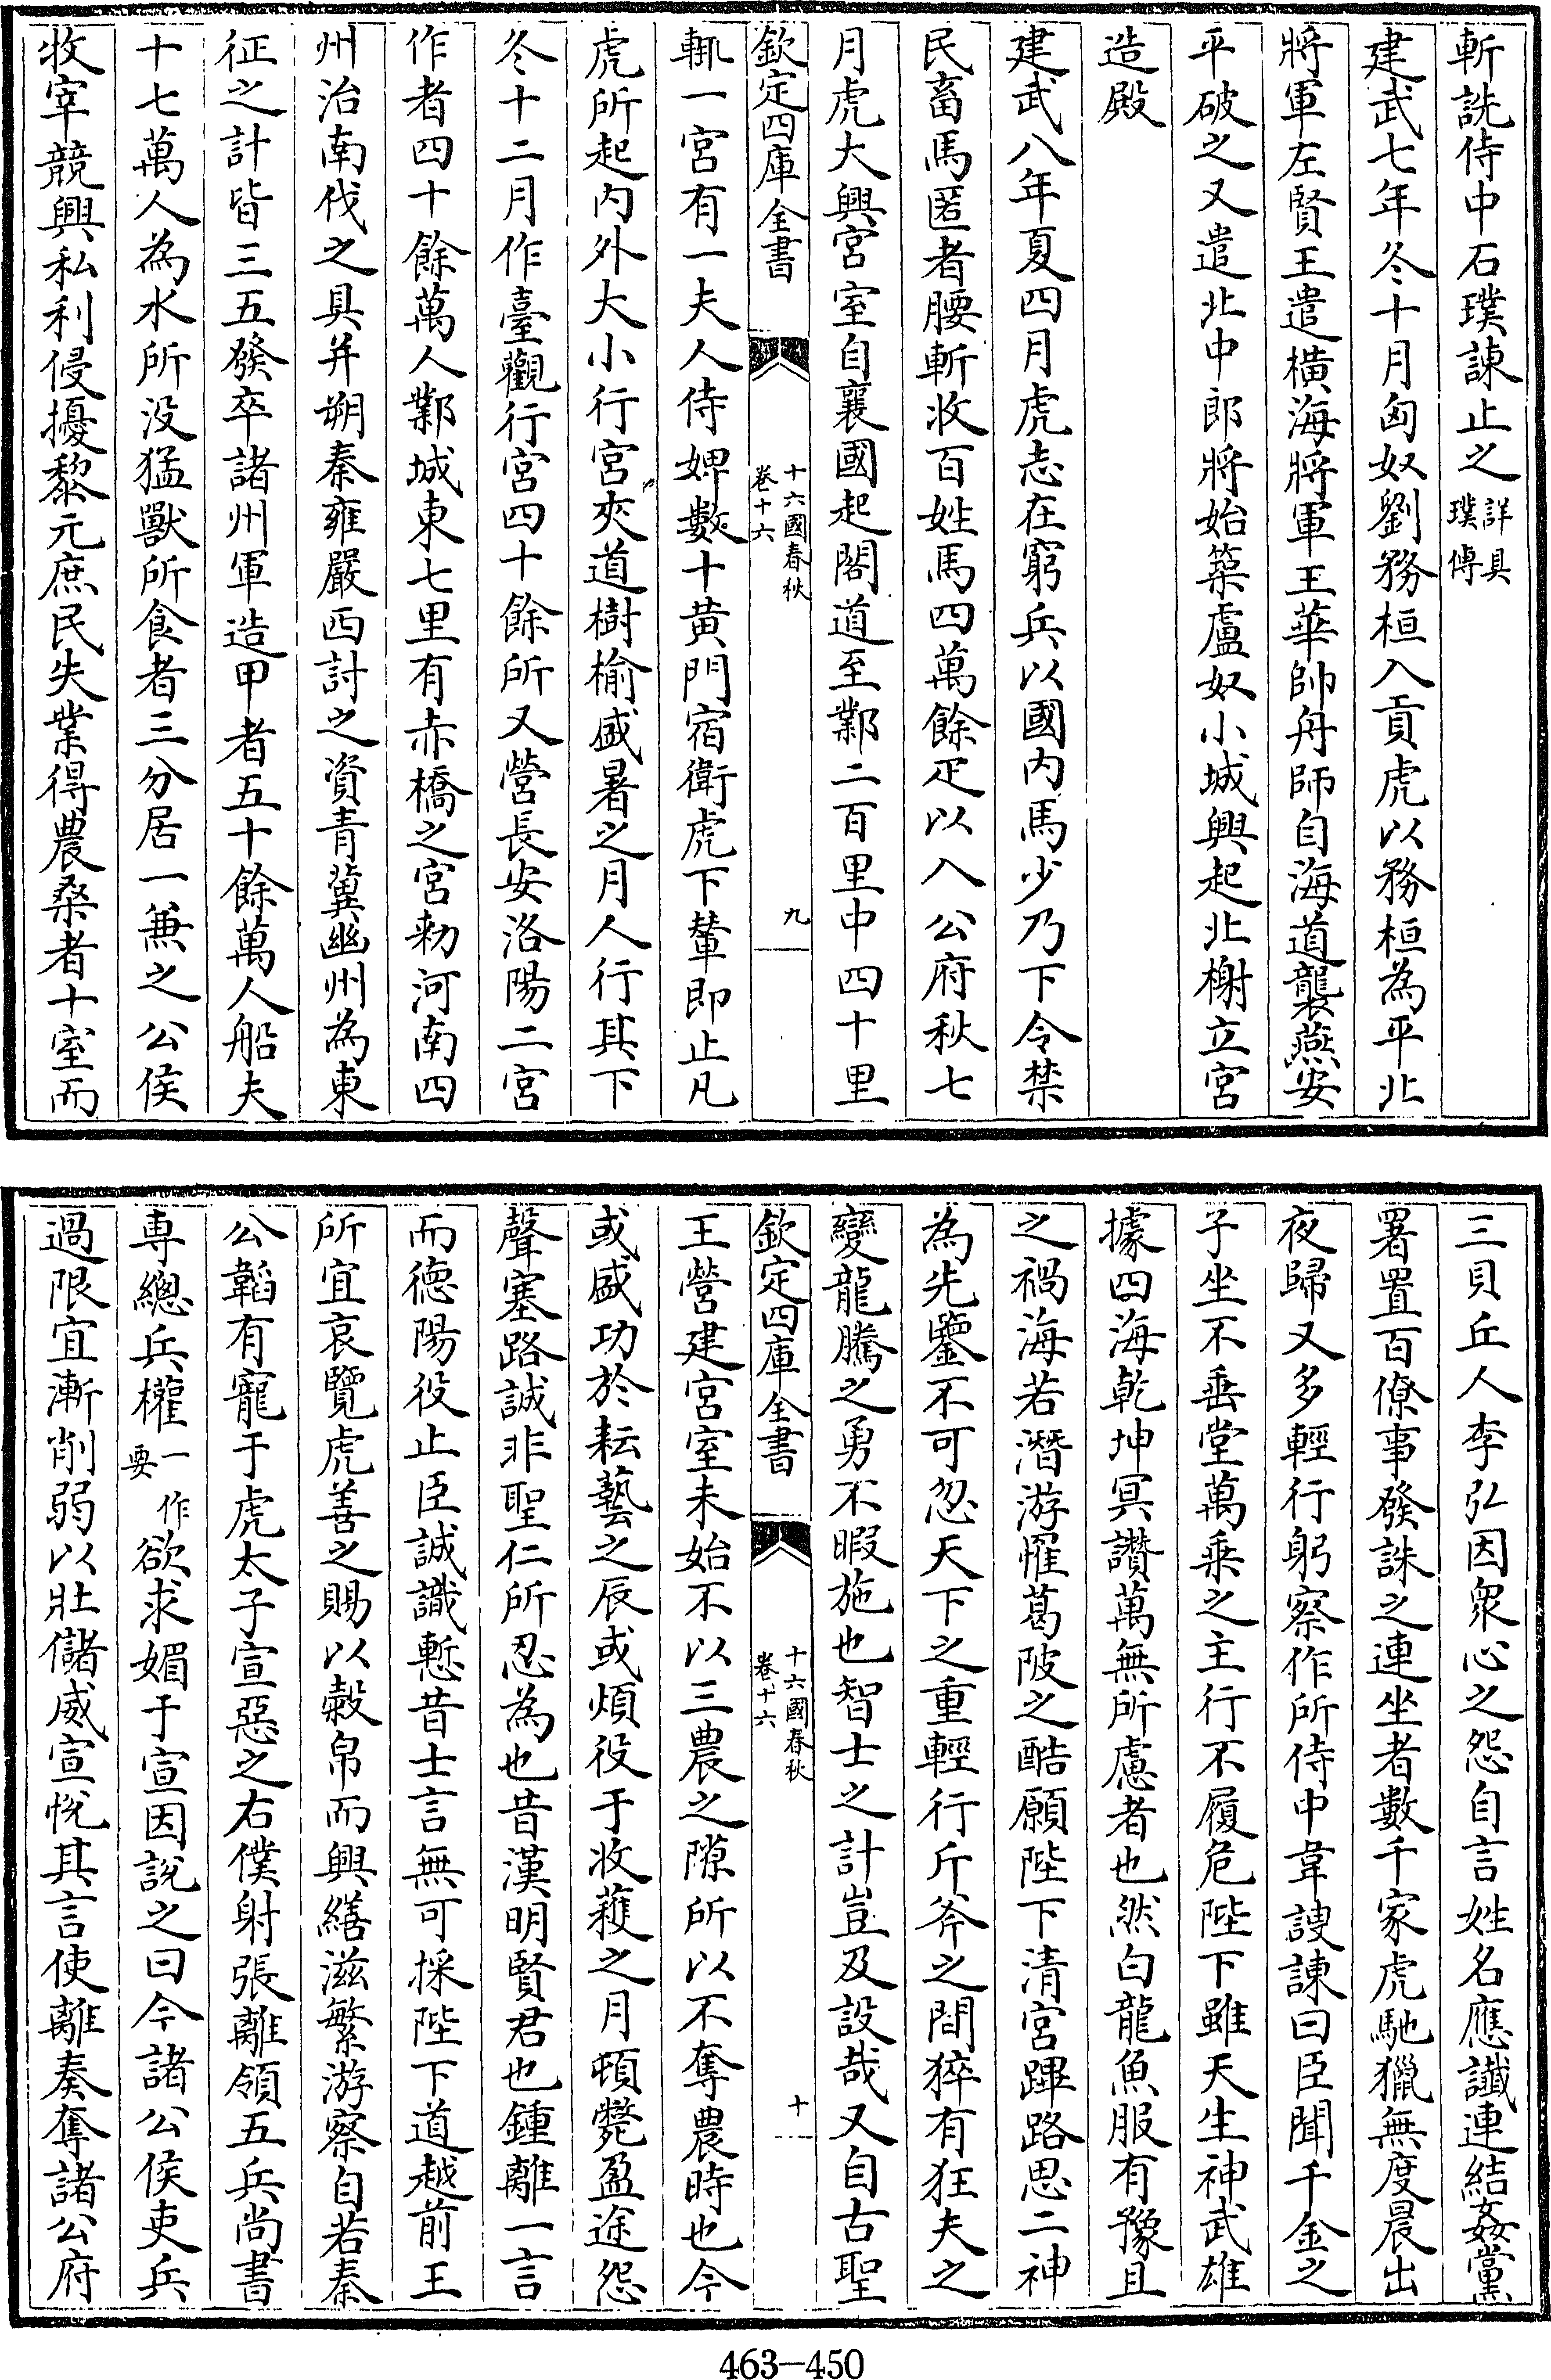 斬詵侍中石璞諫止之詳具璞傳
建武七年冬十月匈奴劉務桓入貢虎以務桓為平北
將軍左賢王遣橫海將軍王華帥舟師自海道襲燕安
平破之又遣北中郎將始築盧奴小城興起北榭立宮
造殿
建武八年夏四月虎志在窮兵以國內馬少乃下令禁
民畜馬匿者腰斬收百姓馬四萬餘疋以入公府秋七
月虎大興宮室自襄國起閣道至鄴二百里中四十里
欽定四庫全書 十六國春秋 卷十六 九
輒一宮有一夫人侍婢數十黃門宿衛虎下輦即止凡
虎所起內外大小行宮夾道樹榆盛暑之月人行其下
冬十二月作臺觀行宮四十餘所又營長安洛陽二宮
作者四十餘萬人鄴城東七里有赤橋之宮勑河南四
州治南伐之具并朔秦雍嚴西討之資青冀幽州為東
征之計皆三五發卒諸州軍造甲者五十餘萬人船夫
十七萬人為水所没猛獸所食者三分居一兼之公侯
牧宰競興私利侵擾黎元庶民失業得農桑者十室而
三貝丘人李弘因衆心之怨自言姓名應讖連結姦黨
署置百僚事發誅之連坐者數千家虎馳獵無度晨出
夜歸又多輕行躬察作所侍中韋謏諫曰臣聞千金之
子坐不垂堂萬乘之主行不履危陛下雖天生神武雄
據四海乾坤冥讚萬無所慮者也然白龍魚服有豫且
之禍海若潛游罹葛陂之酷願陛下清宮蹕路思二神
為先鑒不可忽天下之重輕行斤斧之間猝有狂夫之
變龍騰之勇不暇施也智士之計豈及設哉又自古聖
欽定四庫全書 十六國春秋 卷十六 十
王營建宮室未始不以三農之隙所以不奪農時也今
或盛功於耘藝之辰或煩役于收穫之月頓斃盈途怨
聲塞路誠非聖仁所忍為也昔漢明賢君也鍾離一言
而德陽役止臣誠識慙昔士言無可採陛下道越前王
所宜哀覽虎善之賜以穀帛而興繕滋繁游察自若秦
公韜有寵于虎太子宣惡之右僕射張離領五兵尚書
專總兵權一作要欲求媚于宣因說之曰今諸公侯吏兵
過限宜漸削弱以壯儲威宣悅其言使離奏奪諸公府
463-450